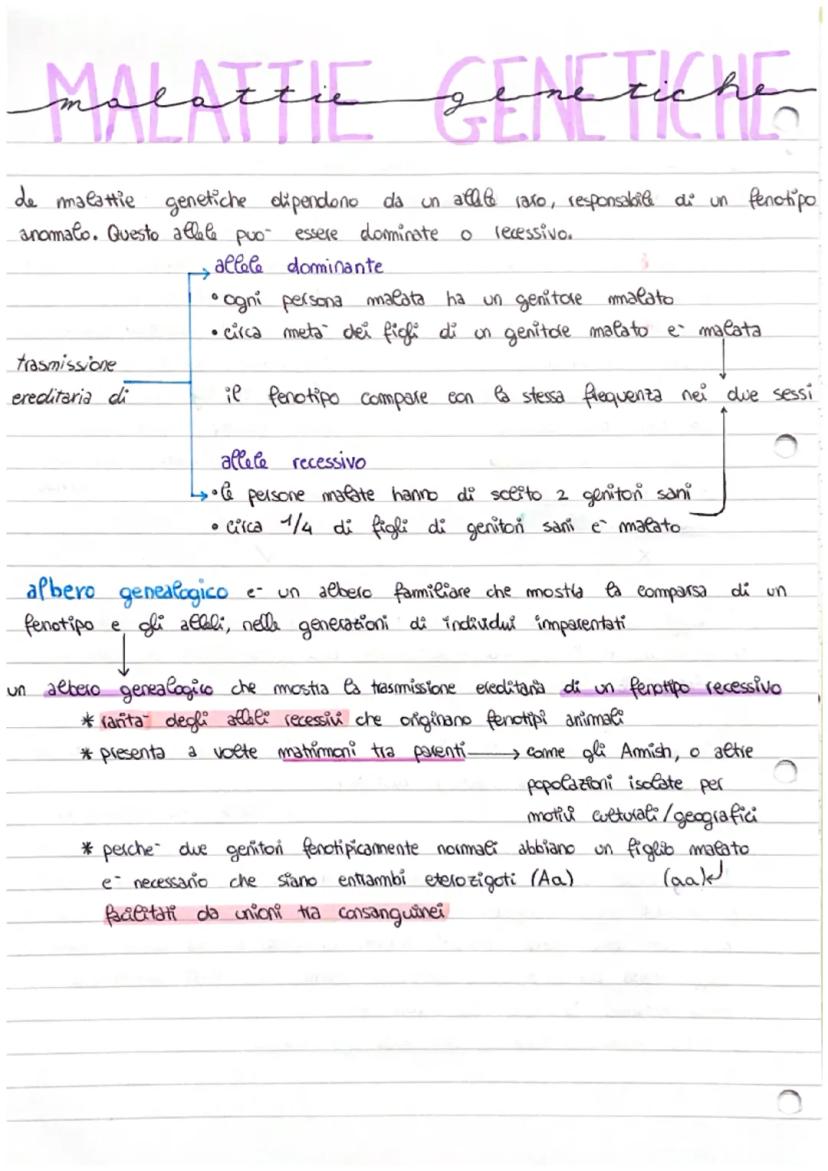 MALATTIE GENETICHE
malattie genetiche
Le malattie genetiche dipendono da un allele raro, responsabile di un fenotipo
anomalo. Questo allele può essere dominate o recessivo.
allele dominante
• ogni persona malata ha un genitore mnalato
• circa metà dei figli di un genitore malato è malata
trasmissione
ereditaria di
il fenotipo compare con la stessa frequenza nei due sessi
allele recessivo
• le persone malate hanno di solito 2 genitori sani
• circa 1/4 di figli di genitori sani è malato
albero genealogico è un albero familiare che mostra la comparsa di un
fenotipo e gli alleli, nelle generazioni di individui imparentati
un albero genealogico che mostra la trasmissione ereditaria di un fenotipo recessivo
* rarità degli alleli recessivi che originano fenotipi animali
* presenta a volte matrimoni tra parenti → come gli Amish, o altre
popolazioni isolate per
motivi culturali/geografici
* perchè due genitori fenotipicamente normali abbiano un figlio malato
è necessario che siano entrambi eterozigoti (Aa) (aa)
facilitati da unioni tra consanguinei